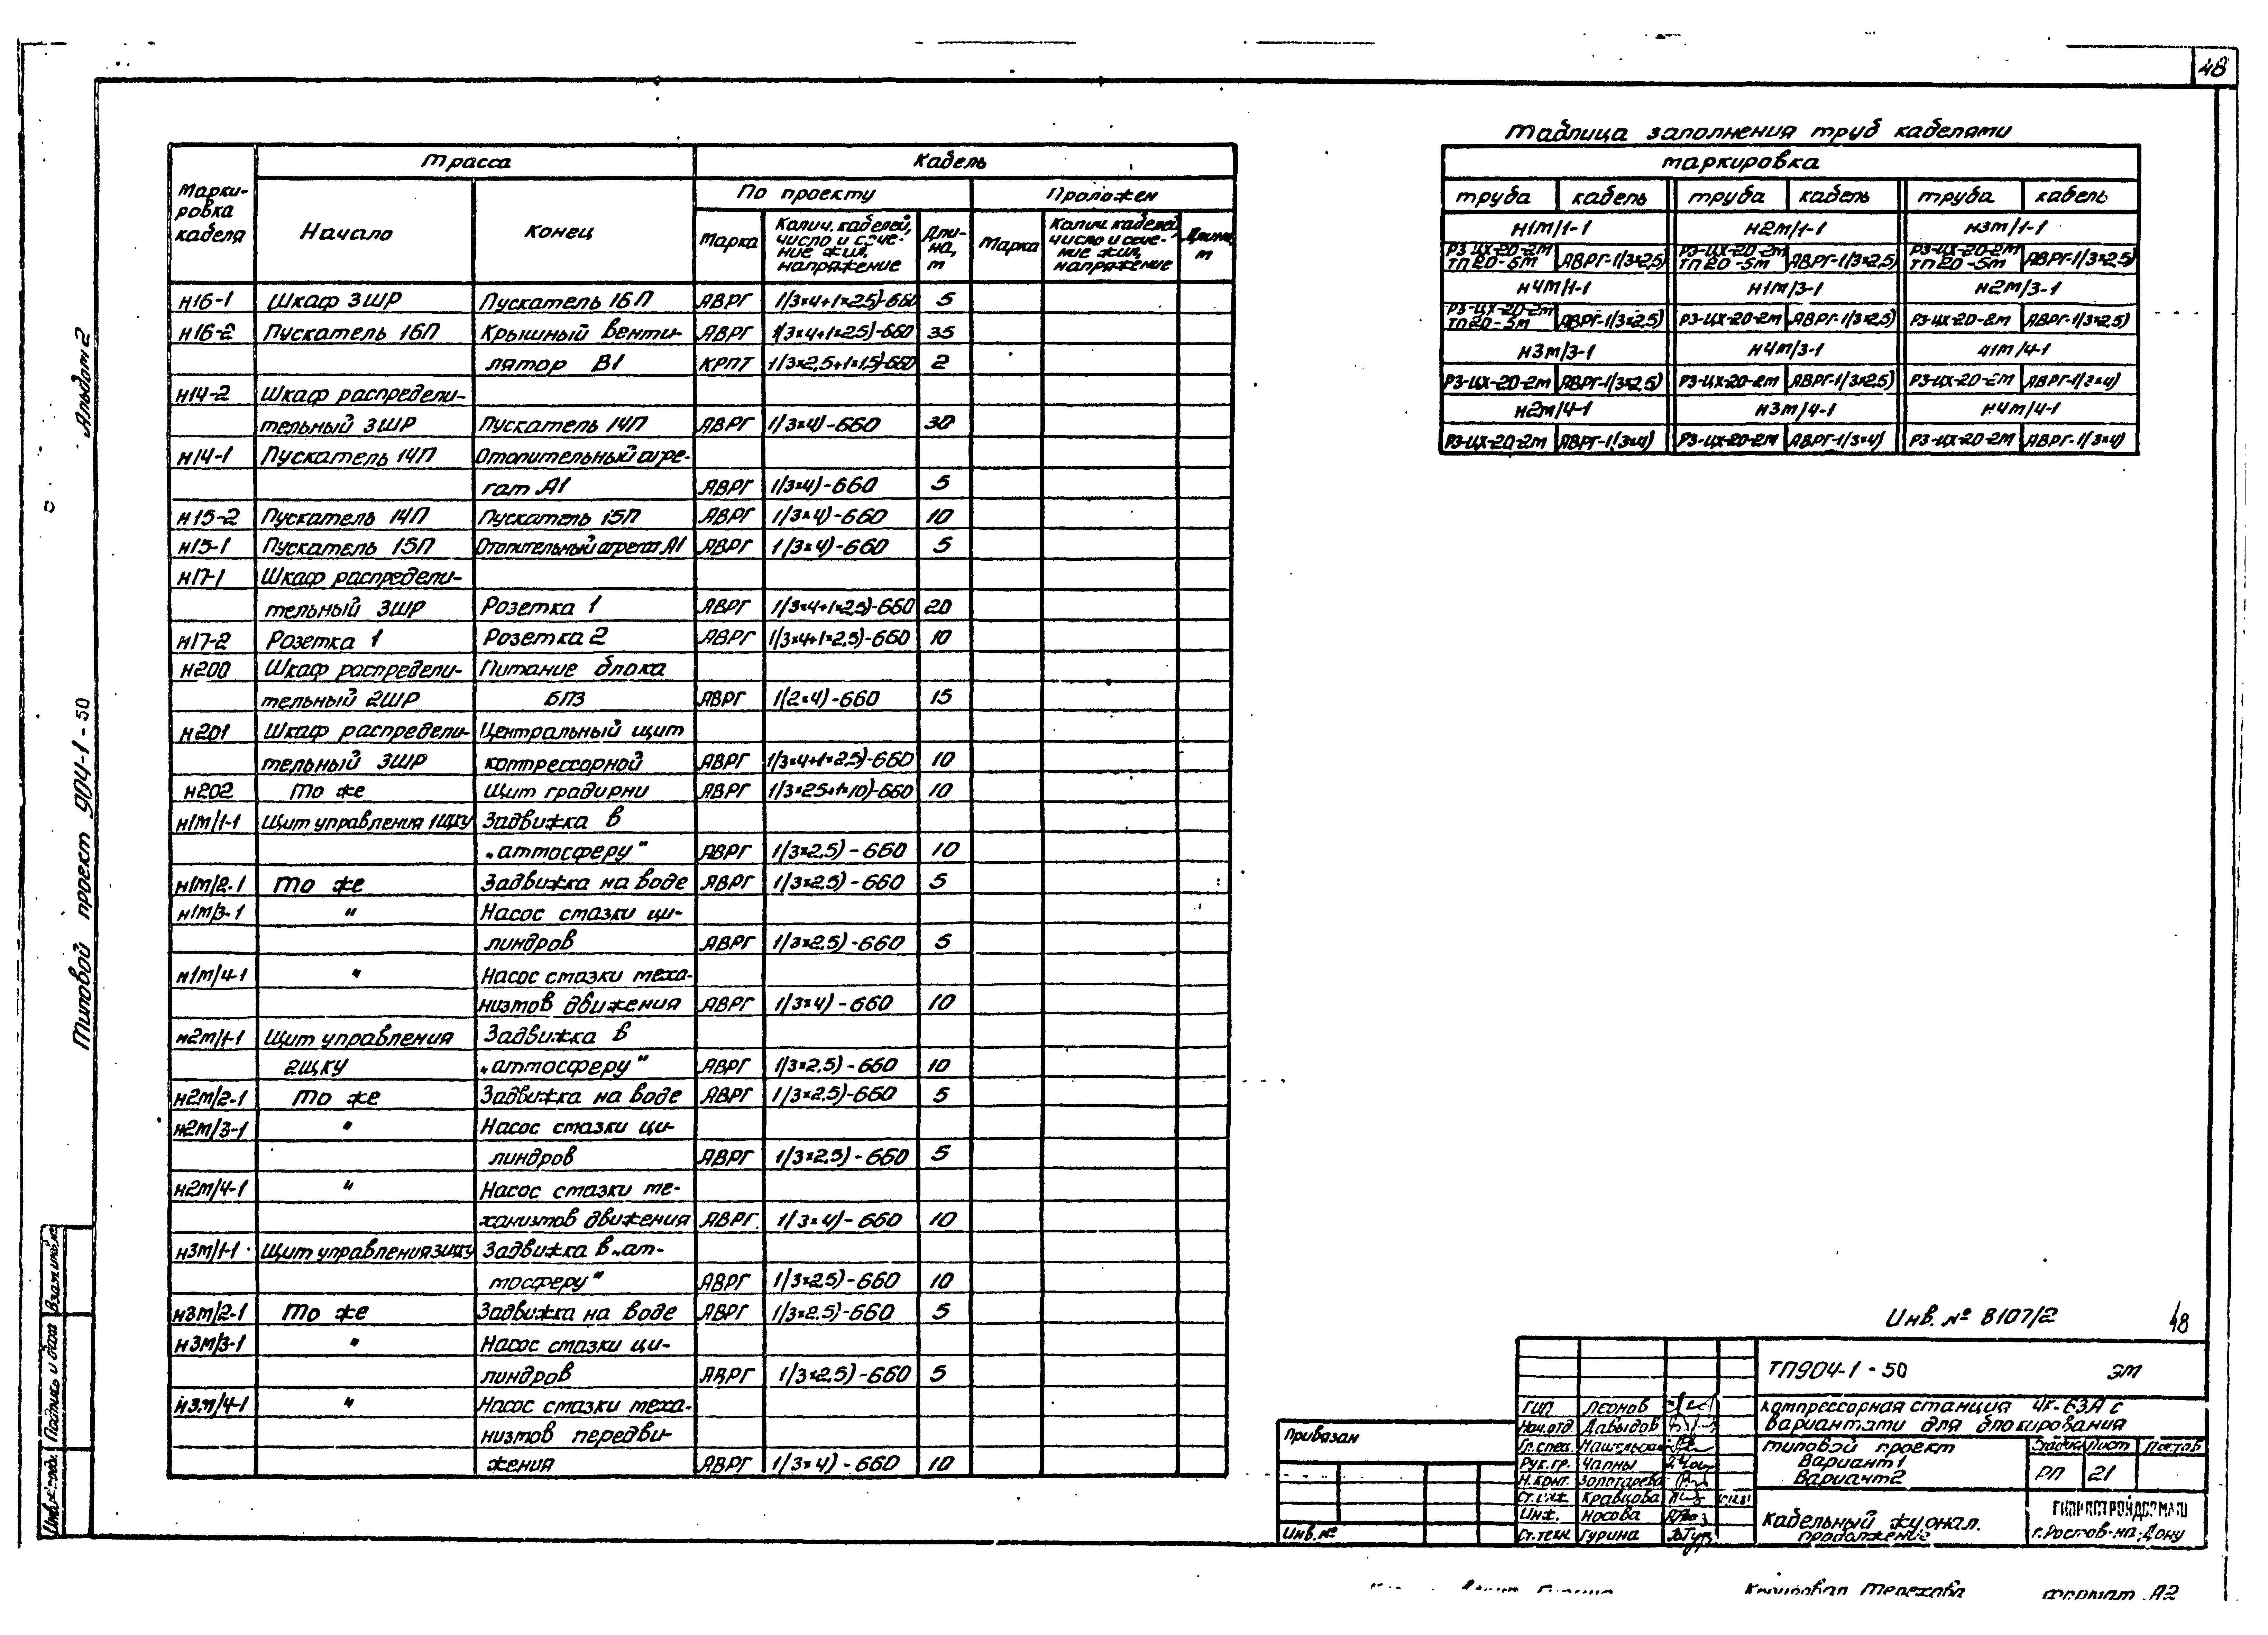 48
Альбом 2
Типовой проект 904-1-50
Трасса
Кабель
Марки-
ровка
кабеля
Начало
Конец
По проекту
Проложен
Марка
Колич. кабелей,
число и сече-
ние жил,
напряжение
Дли-
на,
м
Марка
Колич. кабелей,
число и сече-
ние жил,
напряжение
Длина,
м
н16-1 Шкаф 3ШР Пускатель 16П АВРГ 1(3×4+1×2,5)-660 5
н16-2 Пускатель 16П Крышный венти- АВРГ 1(3×4+1×2,5)-660 35
лятор В1 КРПТ 1(3×2,5+1×1,5)-660 2
н14-2 Шкаф распредели-
тельный 3ШР Пускатель 14П АВРГ 1(3×4)-660 30
н14-1 Пускатель 14П Отопительный агре-
гат А1 АВРГ 1(3×4)-660 5
н15-2 Пускатель 14П Пускатель 15П АВРГ 1(3×4)-660 10
н15-1 Пускатель 15П Отопительный агрегат А1 АВРГ 1(3×4)-660 5
н17-1 Шкаф распредели-
тельный 3ШР Розетка 1 АВРГ 1(3×4+1×2,5)-660 20
н17-2 Розетка 1 Розетка 2 АВРГ 1(3×4+1×2,5)-660 10
н200 Шкаф распредели- Питание блока
тельный 2ШР БПЗ АВРГ 1(2×4)-660 15
н201 Шкаф распредели- Центральный щит
тельный 3ШР компрессорной АВРГ 1(3×4+1×2,5)-660 10
н202 То же Щит градирни АВРГ 1(3×25+1×10)-660 10
н1м/1-1 Щит управления 1ЩКУ Задвижка в
„атмосферу" АВРГ 1(3×2,5)-660 10
н1м/2-1 То же Задвижка на воде АВРГ 1(3×2,5)-660 5
н1м/3-1 " Насос смазки ци-
линдров АВРГ 1(3×2,5)-660 5
н1м/4-1 " Насос смазки меха-
низмов движения АВРГ 1(3×4)-660 10
н2м/1-1 Щит управления Задвижка в
2ЩКУ „атмосферу" АВРГ 1(3×2,5)-660 10
н2м/2-1 То же Задвижка на воде АВРГ 1(3×2,5)-660 5
н2м/3-1 " Насос смазки ци-
линдров АВРГ 1(3×2,5)-660 5
н2м/4-1 " Насос смазки ме-
ханизмов движения АВРГ 1(3×4)-660 10
н3м/1-1 Щит управления 3ЩКУ Задвижка в „ат-
мосферу" АВРГ 1(3×2,5)-660 10
н3м/2-1 То же Задвижка на воде АВРГ 1(3×2,5)-660 5
н3м/3-1 " Насос смазки ци-
линдров АВРГ 1(3×2,5)-660 5
н3м/4-1 " Насос смазки меха-
низмов передви-
жения АВРГ 1(3×4)-660 10
Таблица заполнения труб кабелями
маркировка
труба кабель труба кабель труба кабель
н1м/1-1 н2м/1-1 н3м/1-1
РЗ-ЦХ-20-2м РЗ-ЦХ-20-2м РЗ-ЦХ-20-2м
ТП20-5м АВРГ-1(3×2,5) ТП20-5м АВРГ-1(3×2,5) ТП20-5м АВРГ-1(3×2,5)
н4м/1-1 н1м/3-1 н2м/3-1
РЗ-ЦХ-20-2м
ТП20-5м АВРГ-1(3×2,5) РЗ-ЦХ-20-2м АВРГ-1(3×2,5) РЗ-ЦХ-20-2м АВРГ-1(3×2,5)
н3м/3-1 н4м/3-1 н1м/4-1
РЗ-ЦХ-20-2м АВРГ-1(3×2,5) РЗ-ЦХ-20-2м АВРГ-1(3×2,5) РЗ-ЦХ-20-2м АВРГ-1(3×4)
н2м/4-1 н3м/4-1 н4м/4-1
РЗ-ЦХ-20-2м АВРГ-1(3×4) РЗ-ЦХ-20-2м АВРГ-1(3×4) РЗ-ЦХ-20-2м АВРГ-1(3×4)
Инв. № 8107/2 48
ТП904-1-50 ЭМ
Компрессорная станция 4К-63А с
вариантами для блокирования
Типовой проект
Вариант 1
Вариант 2
Стадия Лист Листов
РП 21
Кабельный журнал.
продолжение
ГИПРОСТРОЙДОРМАШ
г.Ростов-на-Дону
ГИП Леонов
Нач.отд. Давыдов
Гл.спец.
Рук.гр. Чапны
Н.конт. Золотарева
Ст.инж. Кравцова
Инж. Носова
Ст.техн. Гурина
Привязан
Инв.№
Взам.инв.№
Подпись и дата
Инв.№ подл.
Копировал Терехова формат А2